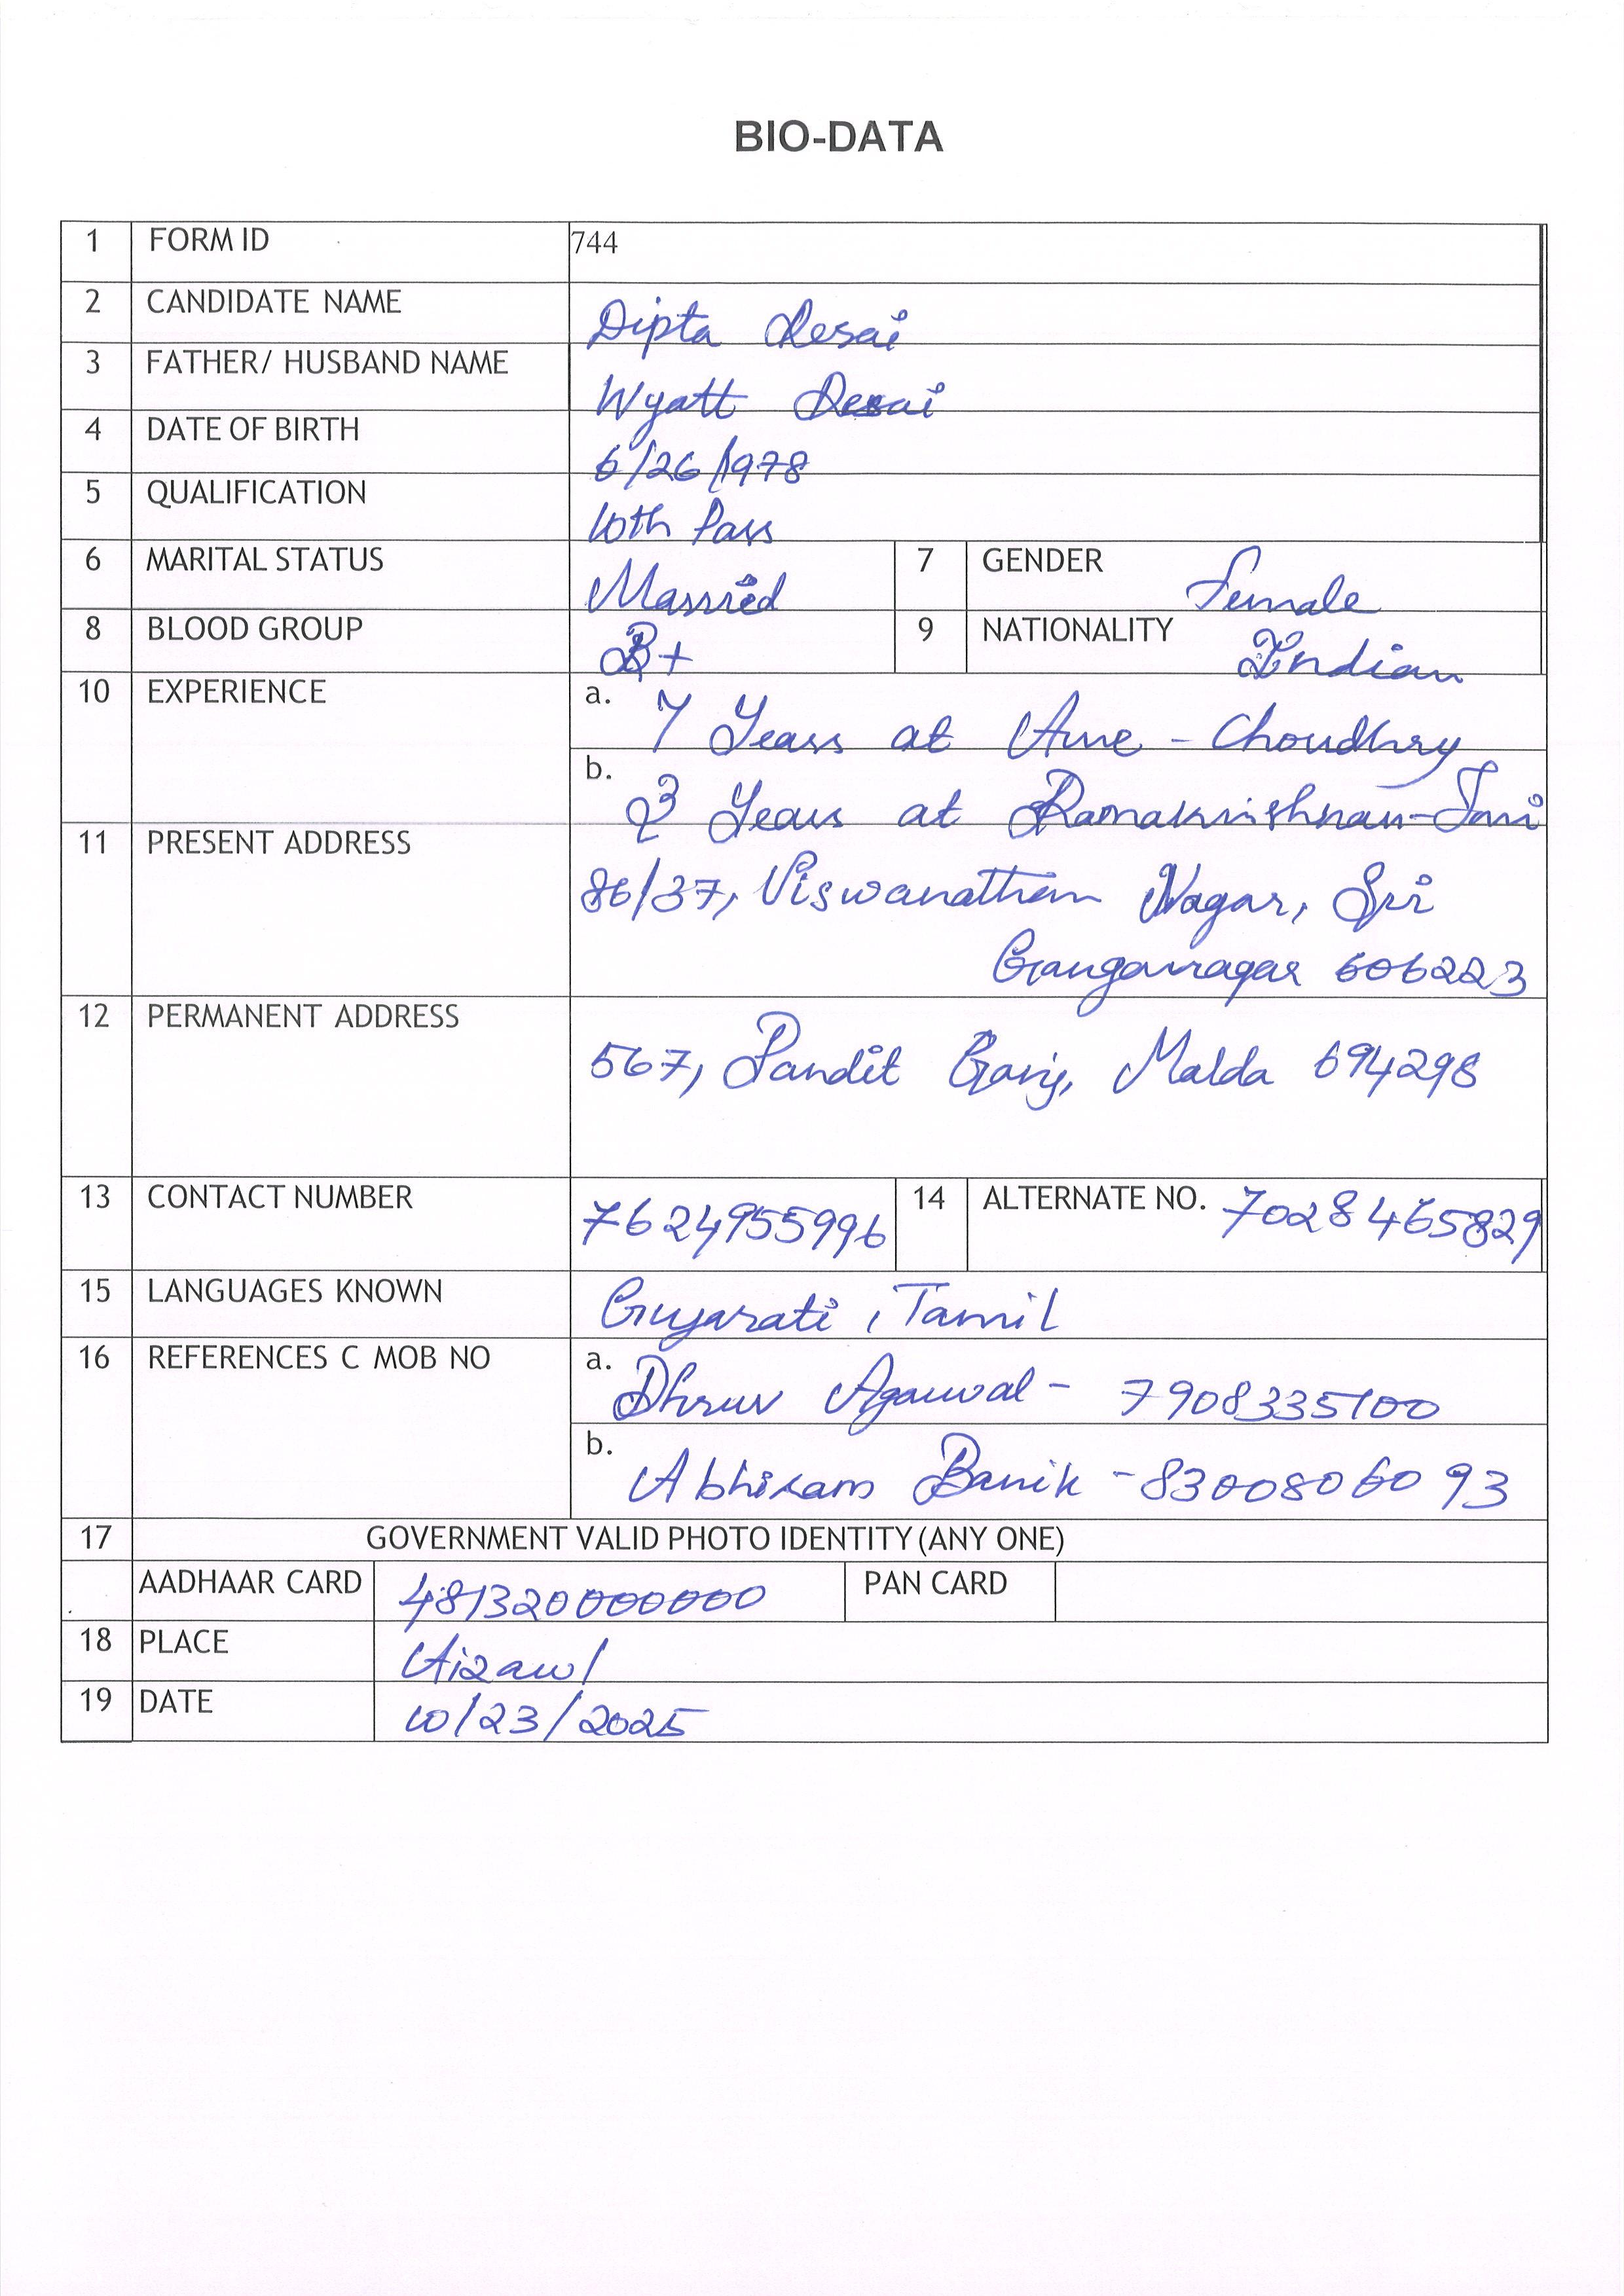 BIO-DATA
1 FORM ID 744
2 CANDIDATE NAME Dipta Desai
3 FATHER/ HUSBAND NAME Wyatt Desai
4 DATE OF BIRTH 6/26/1978
5 QUALIFICATION 10th Pass
6 MARITAL STATUS Married 7 GENDER Female
8 BLOOD GROUP B+ 9 NATIONALITY Indian
10 EXPERIENCE a. 7 Years at Ame - Choudhry
b. 3 Years at Ramakrishnan-Soni
11 PRESENT ADDRESS 86/37, Viswanathan Nagar, Sri
Ganganagar 606223
12 PERMANENT ADDRESS 567, Pandit Ganj, Malda 694298
13 CONTACT NUMBER 7624955996 14 ALTERNATE NO. 7028465829
15 LANGUAGES KNOWN Gujarati, Tamil
16 REFERENCES C MOB NO a. Dhruv Agarwal - 7908335100
b. Abhiram Banik - 8300806093
17 GOVERNMENT VALID PHOTO IDENTITY (ANY ONE)
AADHAAR CARD 481320000000 PAN CARD
18 PLACE Aizawl
19 DATE 10/23/2025